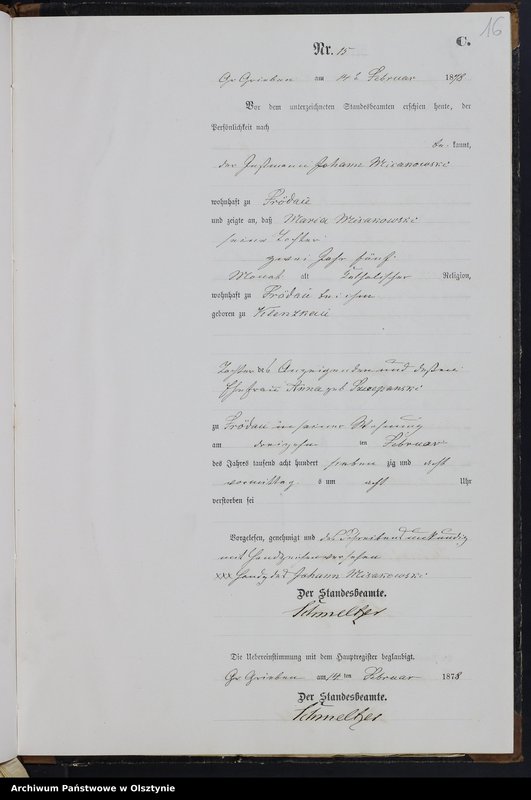 16
C.
Nr. 15
Gr Grieben am 14 t Februar 1878
Vor dem unterzeichneten Standesbeamten erschien heute, der
Persönlichkeit nach
be kannt,
der Johann Misakowski
wohnhaft zu Frödau
und zeigte an, daß Maria Misakowski
seine Tochter
zwei Jahr fünf
Monat alt katholischer Religion,
wohnhaft zu Frödau bei ihm
geboren zu Klenzkau
Tochter des Anzeigenden und dessen
Ehefrau Anna geb Szczepanski
zu Frödau in seiner Wohnung
am dreizehn ten Februar
des Jahres tausend acht hundert sieben zig und acht
vormittag s um acht Uhr
verstorben sei
Vorgelesen, genehmigt und des Schreibens unkundig
mit Handzeichen versehen
xxx Handz des Johann Misakowski
Der Standesbeamte.
Schmeltzer
Die Uebereinstimmung mit dem Hauptregister beglaubigt.
Gr Grieben am 14 ten Februar 1878
Der Standesbeamte.
Schmeltzer
Archiwum Państwowe w Olsztynie